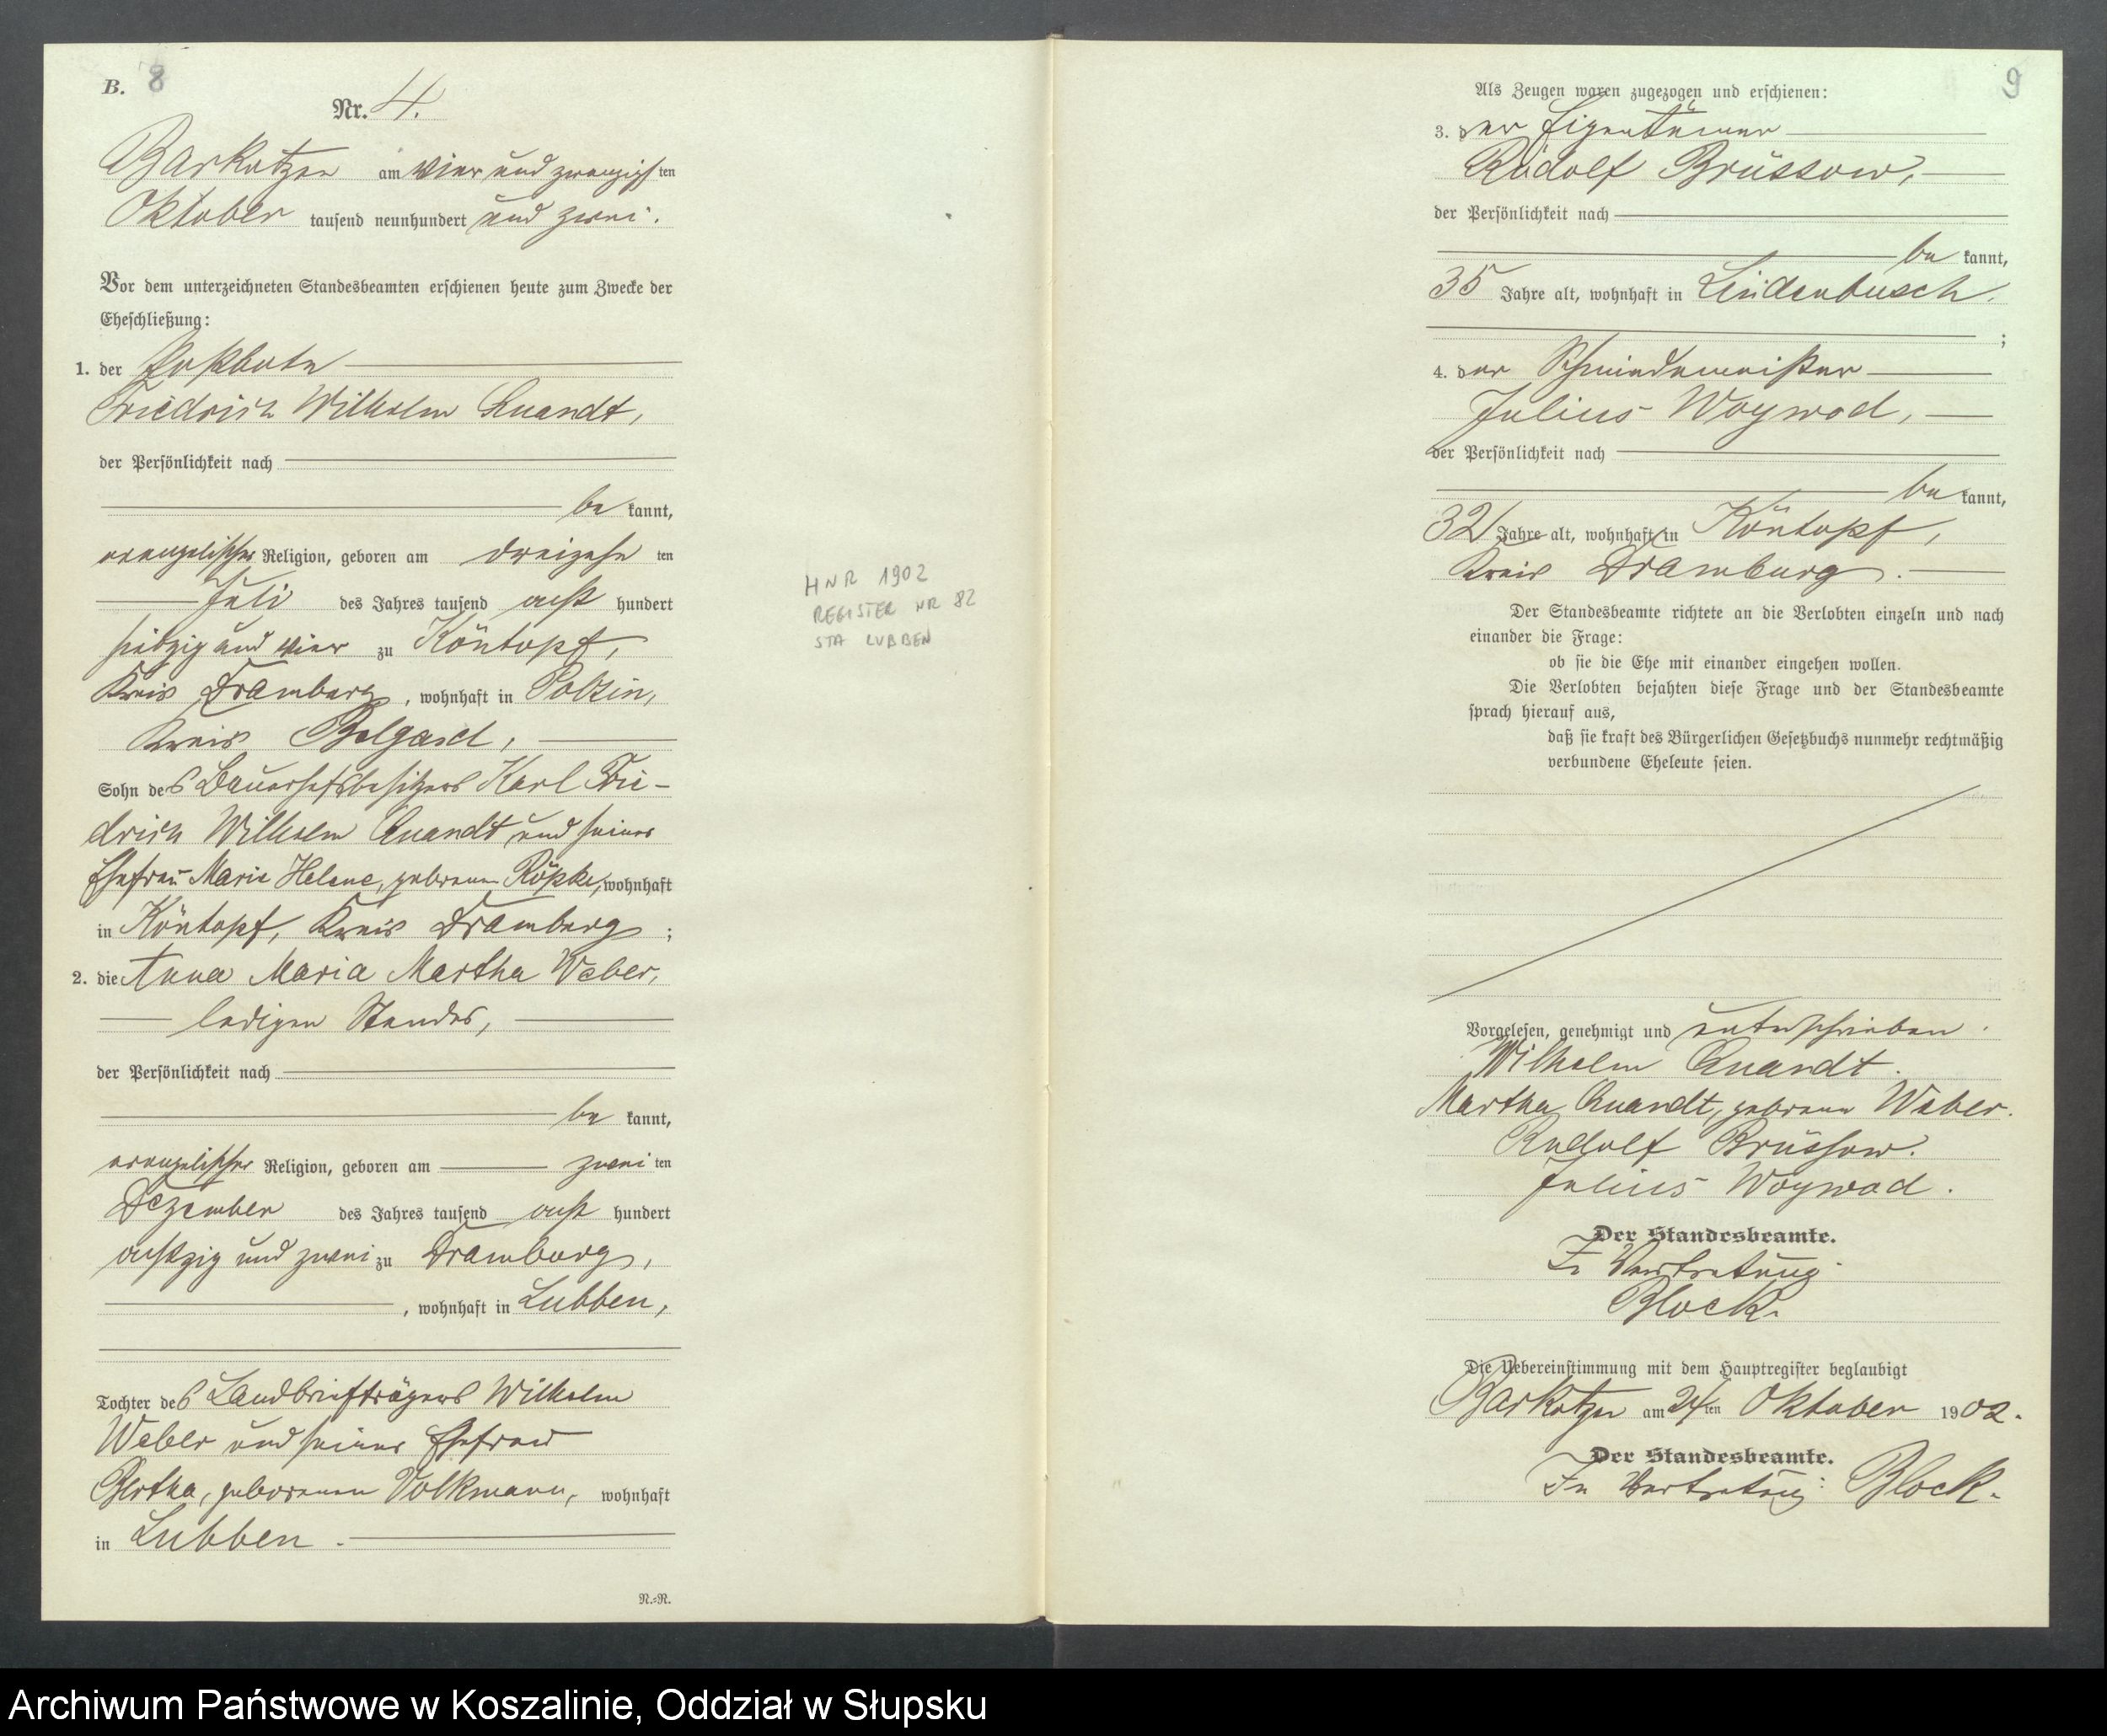 B. 8
Nr. 4.
Barkotzen am vier und zwanzigsten
Oktober tausend neunhundert und zwei.
Vor dem unterzeichneten Standesbeamten erschienen heute zum Zwecke der
Eheschließung:
1. der Postbote
Friedrich Wilhelm Quandt,
der Persönlichkeit nach
be kannt,
evangelischer Religion, geboren am dreizehn ten
Juli des Jahres tausend acht hundert
siebzig und vier zu Köntopf,
Kreis Dramburg, wohnhaft in Polzin,
Kreis Belgard,
Sohn des Bauerhofsbesitzers Karl Frie-
drich Wilhelm Quandt und seiner
Ehefrau Marie Helene, geborenen Röpke, wohnhaft
in Köntopf, Kreis Dramburg;
2. die Anna Maria Martha Weber,
ledigen Standes,
der Persönlichkeit nach
be kannt,
evangelischer Religion, geboren am zwei ten
Dezember des Jahres tausend acht hundert
achtzig und zwei zu Dramburg,
, wohnhaft in Lubben,
Tochter des Landbriefträgers Wilhelm
Weber und seiner Ehefrau
Bertha, geborenen Volkmann, wohnhaft
in Lubben.
N.=N.
HNR 1902
REGISTER NR 82
STA LUBBEN
9
Als Zeugen waren zugezogen und erschienen:
3. der Eigentümer
Rudolf Brüssow,
der Persönlichkeit nach
be kannt,
35 Jahre alt, wohnhaft in Lindenbusch
;
4. der Schmiedemeister
Julius Woywod,
der Persönlichkeit nach
be kannt,
32 Jahre alt, wohnhaft in Köntopf,
Kreis Dramburg.
Der Standesbeamte richtete an die Verlobten einzeln und nach
einander die Frage:
ob sie die Ehe mit einander eingehen wollen.
Die Verlobten bejahten diese Frage und der Standesbeamte
sprach hierauf aus,
daß sie kraft des Bürgerlichen Gesetzbuchs nunmehr rechtmäßig
verbundene Eheleute seien.
Vorgelesen, genehmigt und unterschrieben.
Wilhelm Quandt.
Martha Quandt, geborene Weber.
Rudolf Brüssow.
Julius Woywod.
Der Standesbeamte.
In Vertretung
Block.
Die Uebereinstimmung mit dem Hauptregister beglaubigt
Barkotzen am 24ten Oktober 1902.
Der Standesbeamte.
In Vertretung: Block.
Archiwum Państwowe w Koszalinie, Oddział w Słupsku